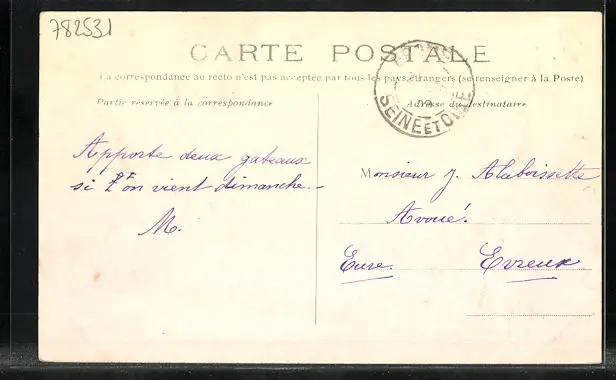 782531
CARTE POSTALE
La correspondance au recto n'est pas acceptée par tous les pays étrangers (se renseigner à la Poste)
Partie réservée à la correspondance
Adresse du destinataire
SEINE ET OISE
Apporte deux gateaux
si on vient dimanche.-
M.
Monsieur J. Alaboissette
Avoué.
Eure. Evreux